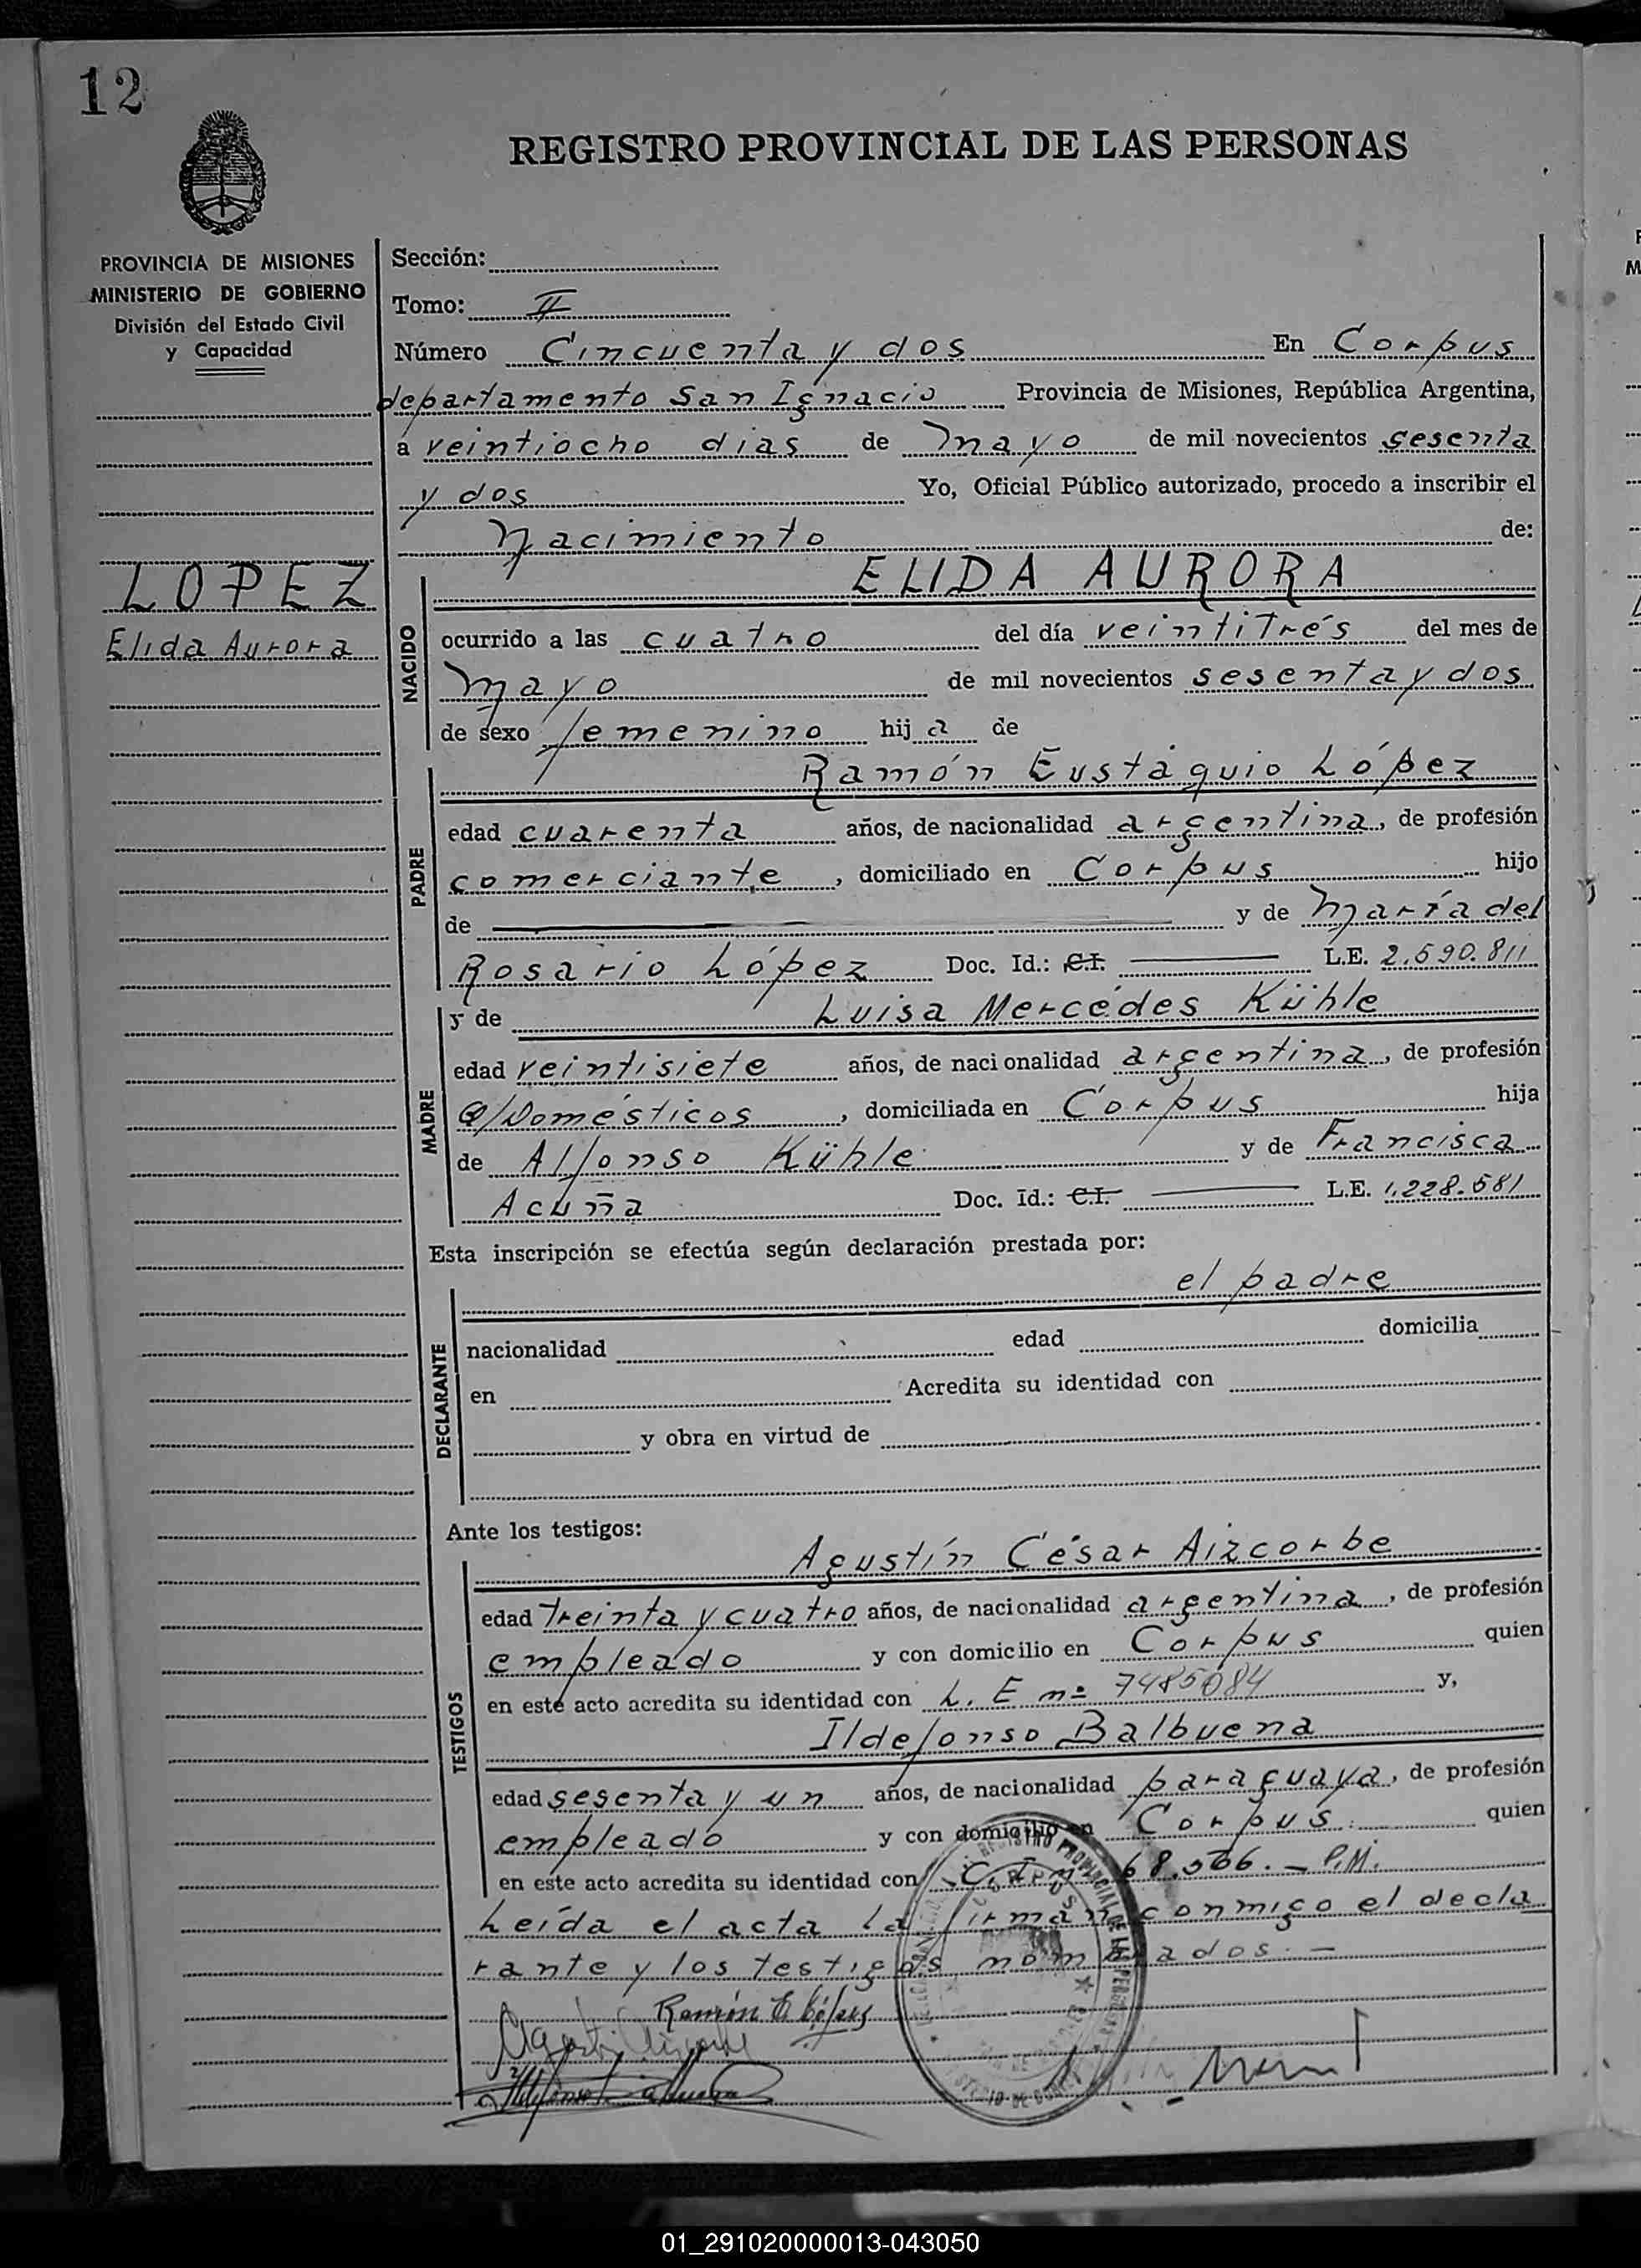 12
REGISTRO PROVINCIAL DE LAS PERSONAS
PROVINCIA DE MISIONES
MINISTERIO DE GOBIERNO
División del Estado Civil
y Capacidad
LOPEZ
Elida Aurora
Sección:
Tomo: II
Número Cincuenta y dos En Corpus
departamento San Ignacio Provincia de Misiones, República Argentina,
a veintiocho dias de Mayo de mil novecientos sesenta
y dos Yo, Oficial Público autorizado, procedo a inscribir el
Nacimiento de:
NACIDO
ELIDA AURORA
ocurrido a las cuatro del día veintitrés del mes de
Mayo de mil novecientos sesenta y dos
de sexo femenino hija de
PADRE
Ramón Eustaquio López
edad cuarenta años, de nacionalidad argentina, de profesión
comerciante, domiciliado en Corpus hijo
de y de María del
Rosario López Doc. Id.: C.I. L.E. 2.590.811
MADRE
y de Luisa Mercedes Kühle
edad veintisiete años, de nacionalidad argentina, de profesión
Q/Domésticos, domiciliada en Corpus hija
de Alfonso Kühle y de Francisca
Acuña Doc. Id.: C.I. L.E. 1.228.581
Esta inscripción se efectúa según declaración prestada por:
DECLARANTE
el padre
nacionalidad edad domicilia
en Acredita su identidad con
y obra en virtud de
Ante los testigos:
TESTIGOS
Agustín César Aizcorbe
edad treinta y cuatro años, de nacionalidad argentina, de profesión
empleado y con domicilio en Corpus quien
en este acto acredita su identidad con L. E nº 7485084 y,
Ildefonso Balbuena
edad sesenta y un años, de nacionalidad paraguaya, de profesión
empleado y con domicilio en Corpus quien
en este acto acredita su identidad con C.I. 68.566.- P.M.
Leída el acta la firman conmigo el decla
rante y los testigos nombrados.-
Ramón E López
01_291020000013-043050